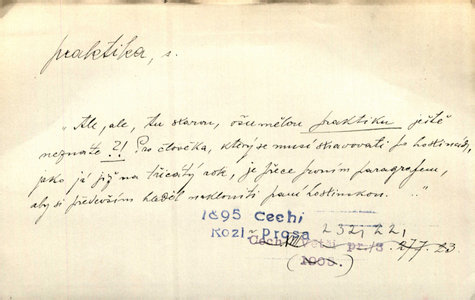 praktika, s.
"Ale, ale, tu starou, ošumělou praktiku ještě
neznáte?! Pro člověka, který se musí stravovati po hostincích,
jako já již na třicátý rok, je přece prvním paragrafem,
aby si především hleděl nakloniti paní hostinskou. ..."
1895 Čech
Rozl. Prosa 232, 22,
Čech Větší pr. /3. 277. 23
1908.